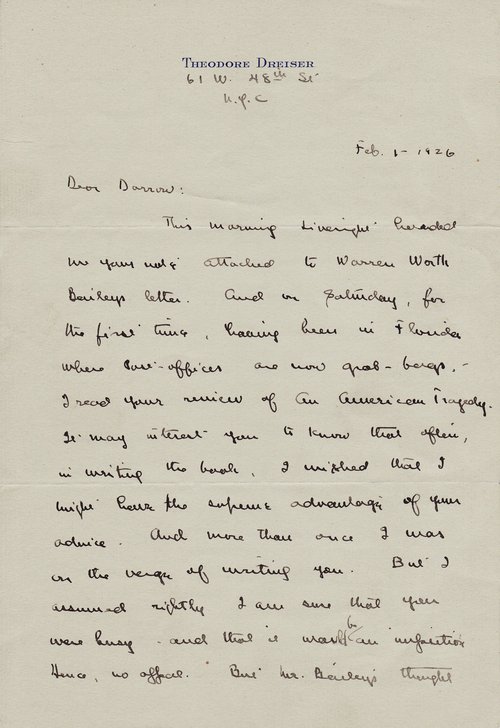 THEODORE DREISER
61 W. 48th St
N.Y.C
Feb. 1- 1926
Dear Darrow:
This morning Liveright handed
me your note attached to Warren Worth
Baileys letter. And on Saturday, for
the first time, having been in Florida
where Post-offices are now grab-bags, -
I read your review of An American Tragedy.
It may interest you to know that often,
in writing the book, I wished that I
might have the supreme advantage of your
advice. And more than once I was
on the verge of writing you. But I
assumed rightly I am sure that you
were busy - and that it would be an imposition
Hence, no appeal. But Mr. Bailey's thought